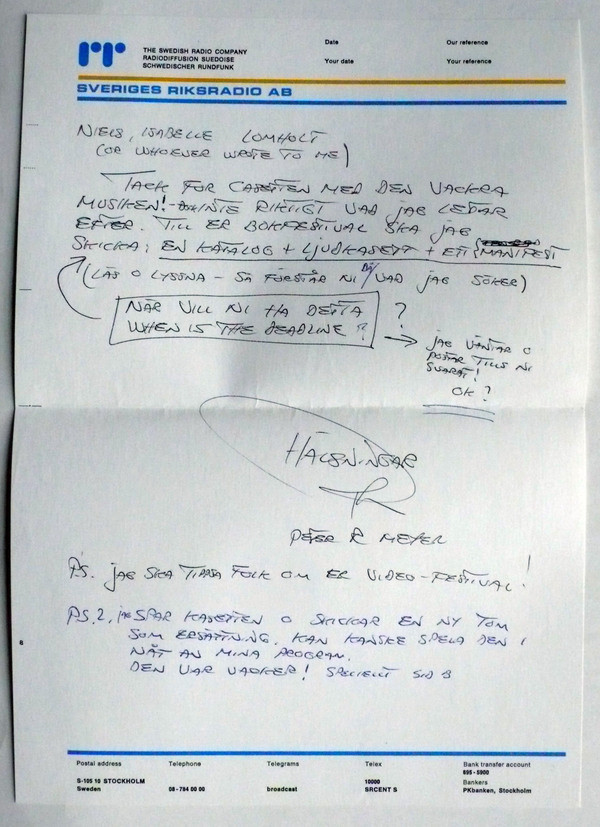 rr
THE SWEDISH RADIO COMPANY
RADIODIFFUSION SUEDOISE
SCHWEDISCHER RUNDFUNK
Date
Our reference
Your date
Your reference
SVERIGES RIKSRADIO AB
NIELS, ISABELLE LOMHOLT
(OR WHOEVER WROTE TO ME)
TACK FÖR CASETTEN MED DEN VACKRA
MUSIKEN! - INTE RIKTIGT VAD JAG LETAR
EFTER. TILL ER BOKFESTIVAL SKA JAG
SKICKA: EN KATALOG + LJUDKASETT + ETT MANIFEST
(LÄS O LYSSNA - SÅ FÖRSTÅR NI VAD JAG SÖKER)
NÄR VILL NI HA DETTA ?
WHEN IS THE DEADLINE ?
JAG VÄNTAR O
POSTAR TILLS NI
SVARAT!
OK?
HÄLSNINGAR
PETER R MEYER
P.S. JAG SKA TIPSA FOLK OM ER VIDEO-FESTIVAL!
P.S.2. JAG SPAR KASETTEN O SKICKAR EN NY TOM
SOM ERSÄTTNING. KAN KANSKE SPELA DEN I
NÅT AN MINA PROGRAM.
DEN VAR VACKER! SPECIELLT SID B
8
Postal address
Telephone
Telegrams
Telex
Bank transfer account
895-5900
S-105 10 STOCKHOLM
10000
Bankers
Sweden
08-784 00 00
broadcast
SRCENT S
PKbanken, Stockholm